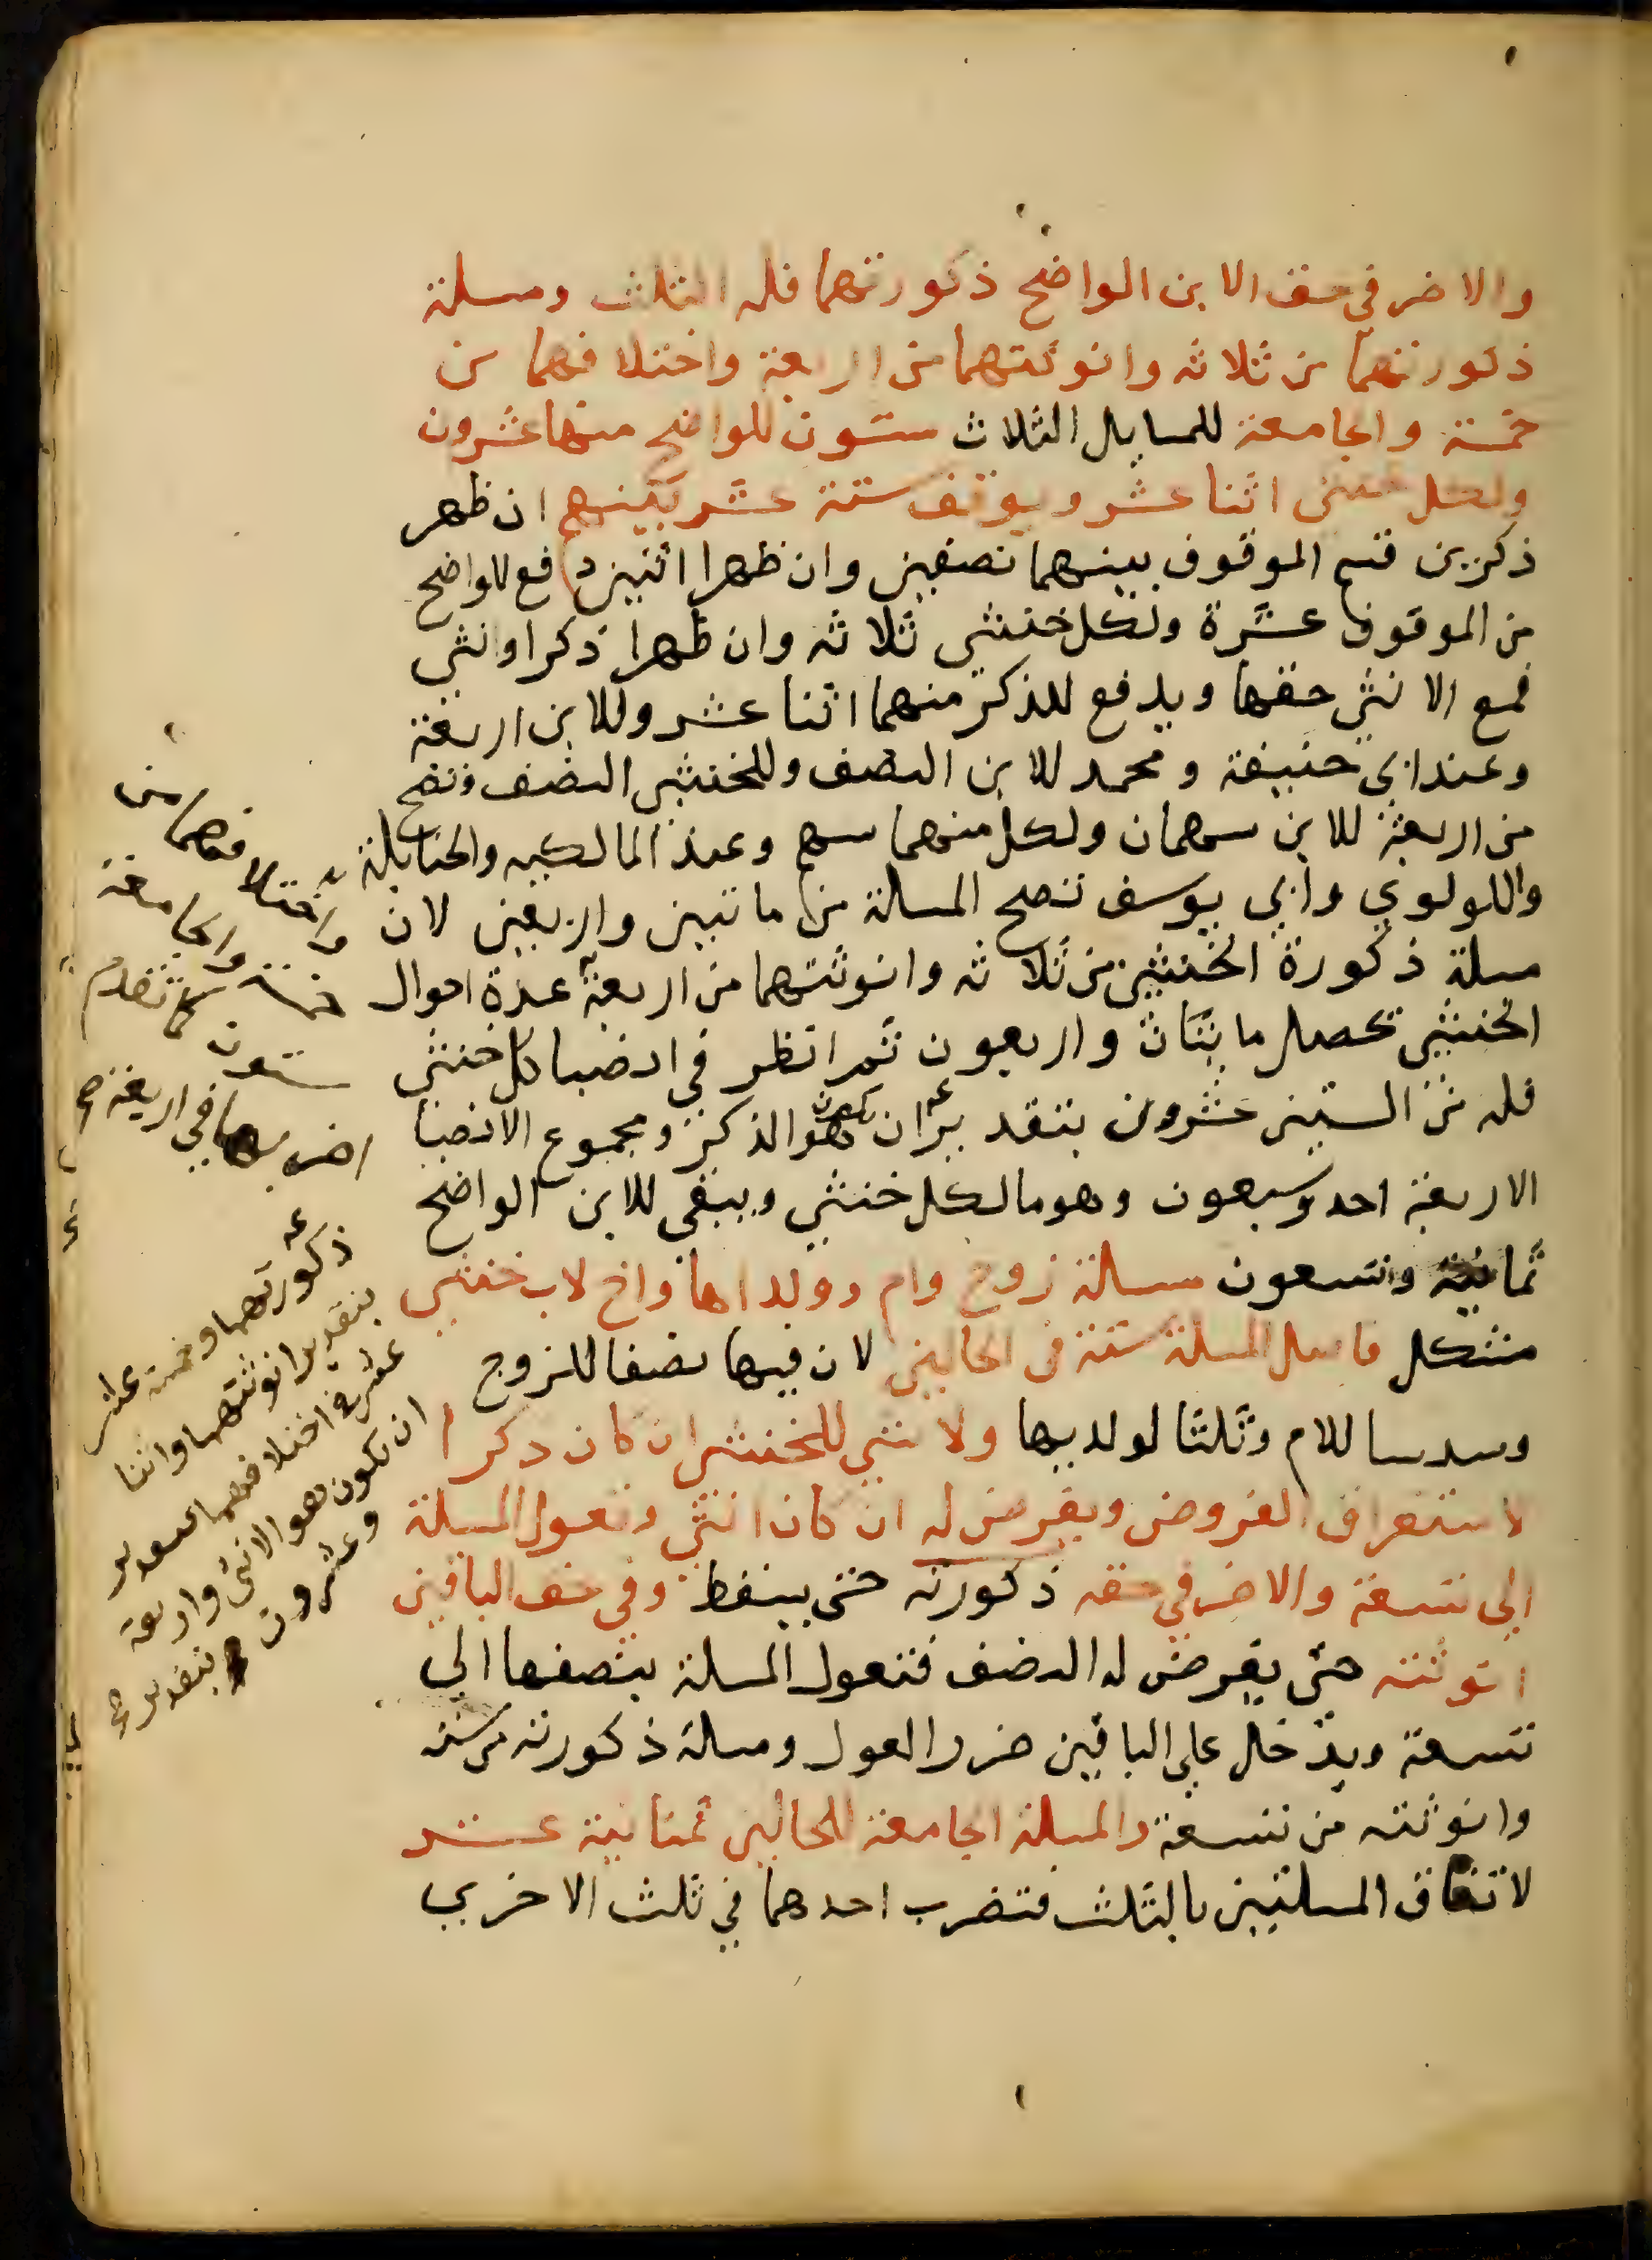 والاضر في حق الابن الواضح ذكورتهما فله الثلث ومسلة
ذكورتهما من ثلاثه وانوثتهما من اربعة واختلافهما من
خمسة والجامعة للمسايل الثلاث ستون للواضح منها عشرون
ولكل خنثى اثنا عشر ويوقف ستة عشر بينهم ان ظهر
ذكرين قسم الموقوف بينهما نصفين وان ظهرا انثيين دفع للواضح
من الموقوف عشرة ولكل خنثي ثلاثه وان ظهرا ذكرا وانثي
فمع الانثي حقها ويدفع للذكر منهما اثنا عشر وللابن اربعة
وعند ابي حنيفة ومحمد للابن النصف وللخنثيين النصف وتصح
من اربعة للابن سهمان ولكل منهما سهم وعند المالكيه والحنابلة
واللولوي وابي يوسف تصح المسلة من ماتيين واربعين لان
مسلة ذكورة الخنثيين من ثلاثه وانوثتهما من اربعة عدة احوال
الخنثيين تحصل مايتان واربعون ثم انظر في انصبا كل خنثي
فله من الستين عشرون بتقدير ان يكون هو الذكر ومجموع الانصبا
الاربعة احد وسبعون وهو مالكل خنثي ويبقي للابن الواضح
ثمانية وتسعون مسلة زوج وام وولداها واخ لاب خنثي
مشكل فاصل المسلة ستة في الحالين لان فيها نصفا للزوج
وسدسا للام وثلثا لولديها ولا شي للخنثى ان كان ذكرا
لاستغراق الفروض ويفرض له ان كان انثي وتعول المسلة
الي تسعة والاضر في حقه ذكورته حتى يسقط وفي حق الباقين
انوثته حتى يفرض له النصف فتعول المسلة بنصفها الي
تسعة ويدخل علي الباقين ضرر العول ومسلة ذكورته من ستة
وانوثته من تسعة والمسلة الجامعة للحالين ثمانية عشر
لاتفاق المسلتين بالثلث فتضرب احدهما في ثلث الاخري
واختلافهما من
خمسة والجامعة
ستون كما تقدم
اضربها في اربعة صح
ذكورتهما وخمسة عشر
بتقدير انوثتهما واثنا
عشر في اختلافهما بتقدير
ان تكون هو الانثى واربعة
وعشرون بتقدير صح